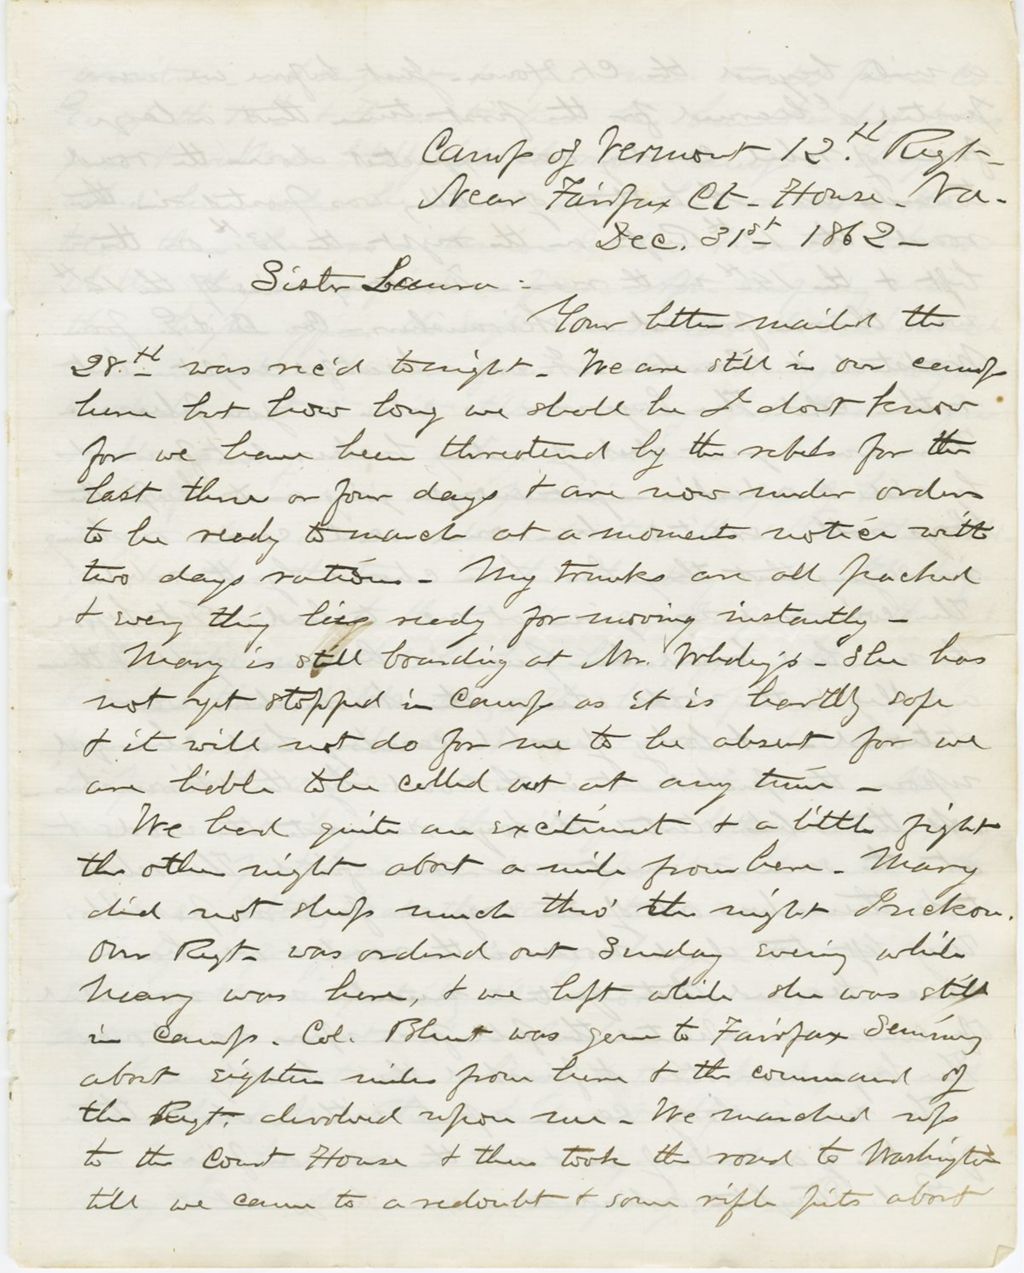 Camp of Vermont 12th Regt-
Near Fairfax Ct- House- Va-
Dec. 31st 1862-
Sister Laura:
Your letter mailed the
28th was rec'd tonight- We are still in our camp
here but how long we shall be I dont know
for we have been threatened by the rebels for the
last three or four days & are now under orders
to be ready to march at a moments notice with
two days rations- My trunks are all packed
& every thing lies ready for moving instantly-
Mary is still boarding at Mr. She has
not yet stopped in camp as it is hardly safe
& it will not do for me to be absent for we
are liable to be called out at any time-
We had quite an excitement & a little fight
the other night about a mile from here- Mary
did not sleep much thro' the night I reckon.
Our Regt- was ordered out Sunday evening while
Mary was here, & we left while she was still
in camp. Col. Blunt was gone to Fairfax Seminary
about eighteen miles from here & the command of
the Regt. devolved upon me- We marched up
to the Court House & then took the road to Washington
till we came to a redoubt & some rifle pits about